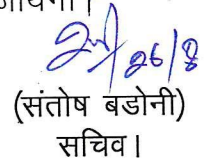 26/8
(संतोष बडोनी)
सचिव।